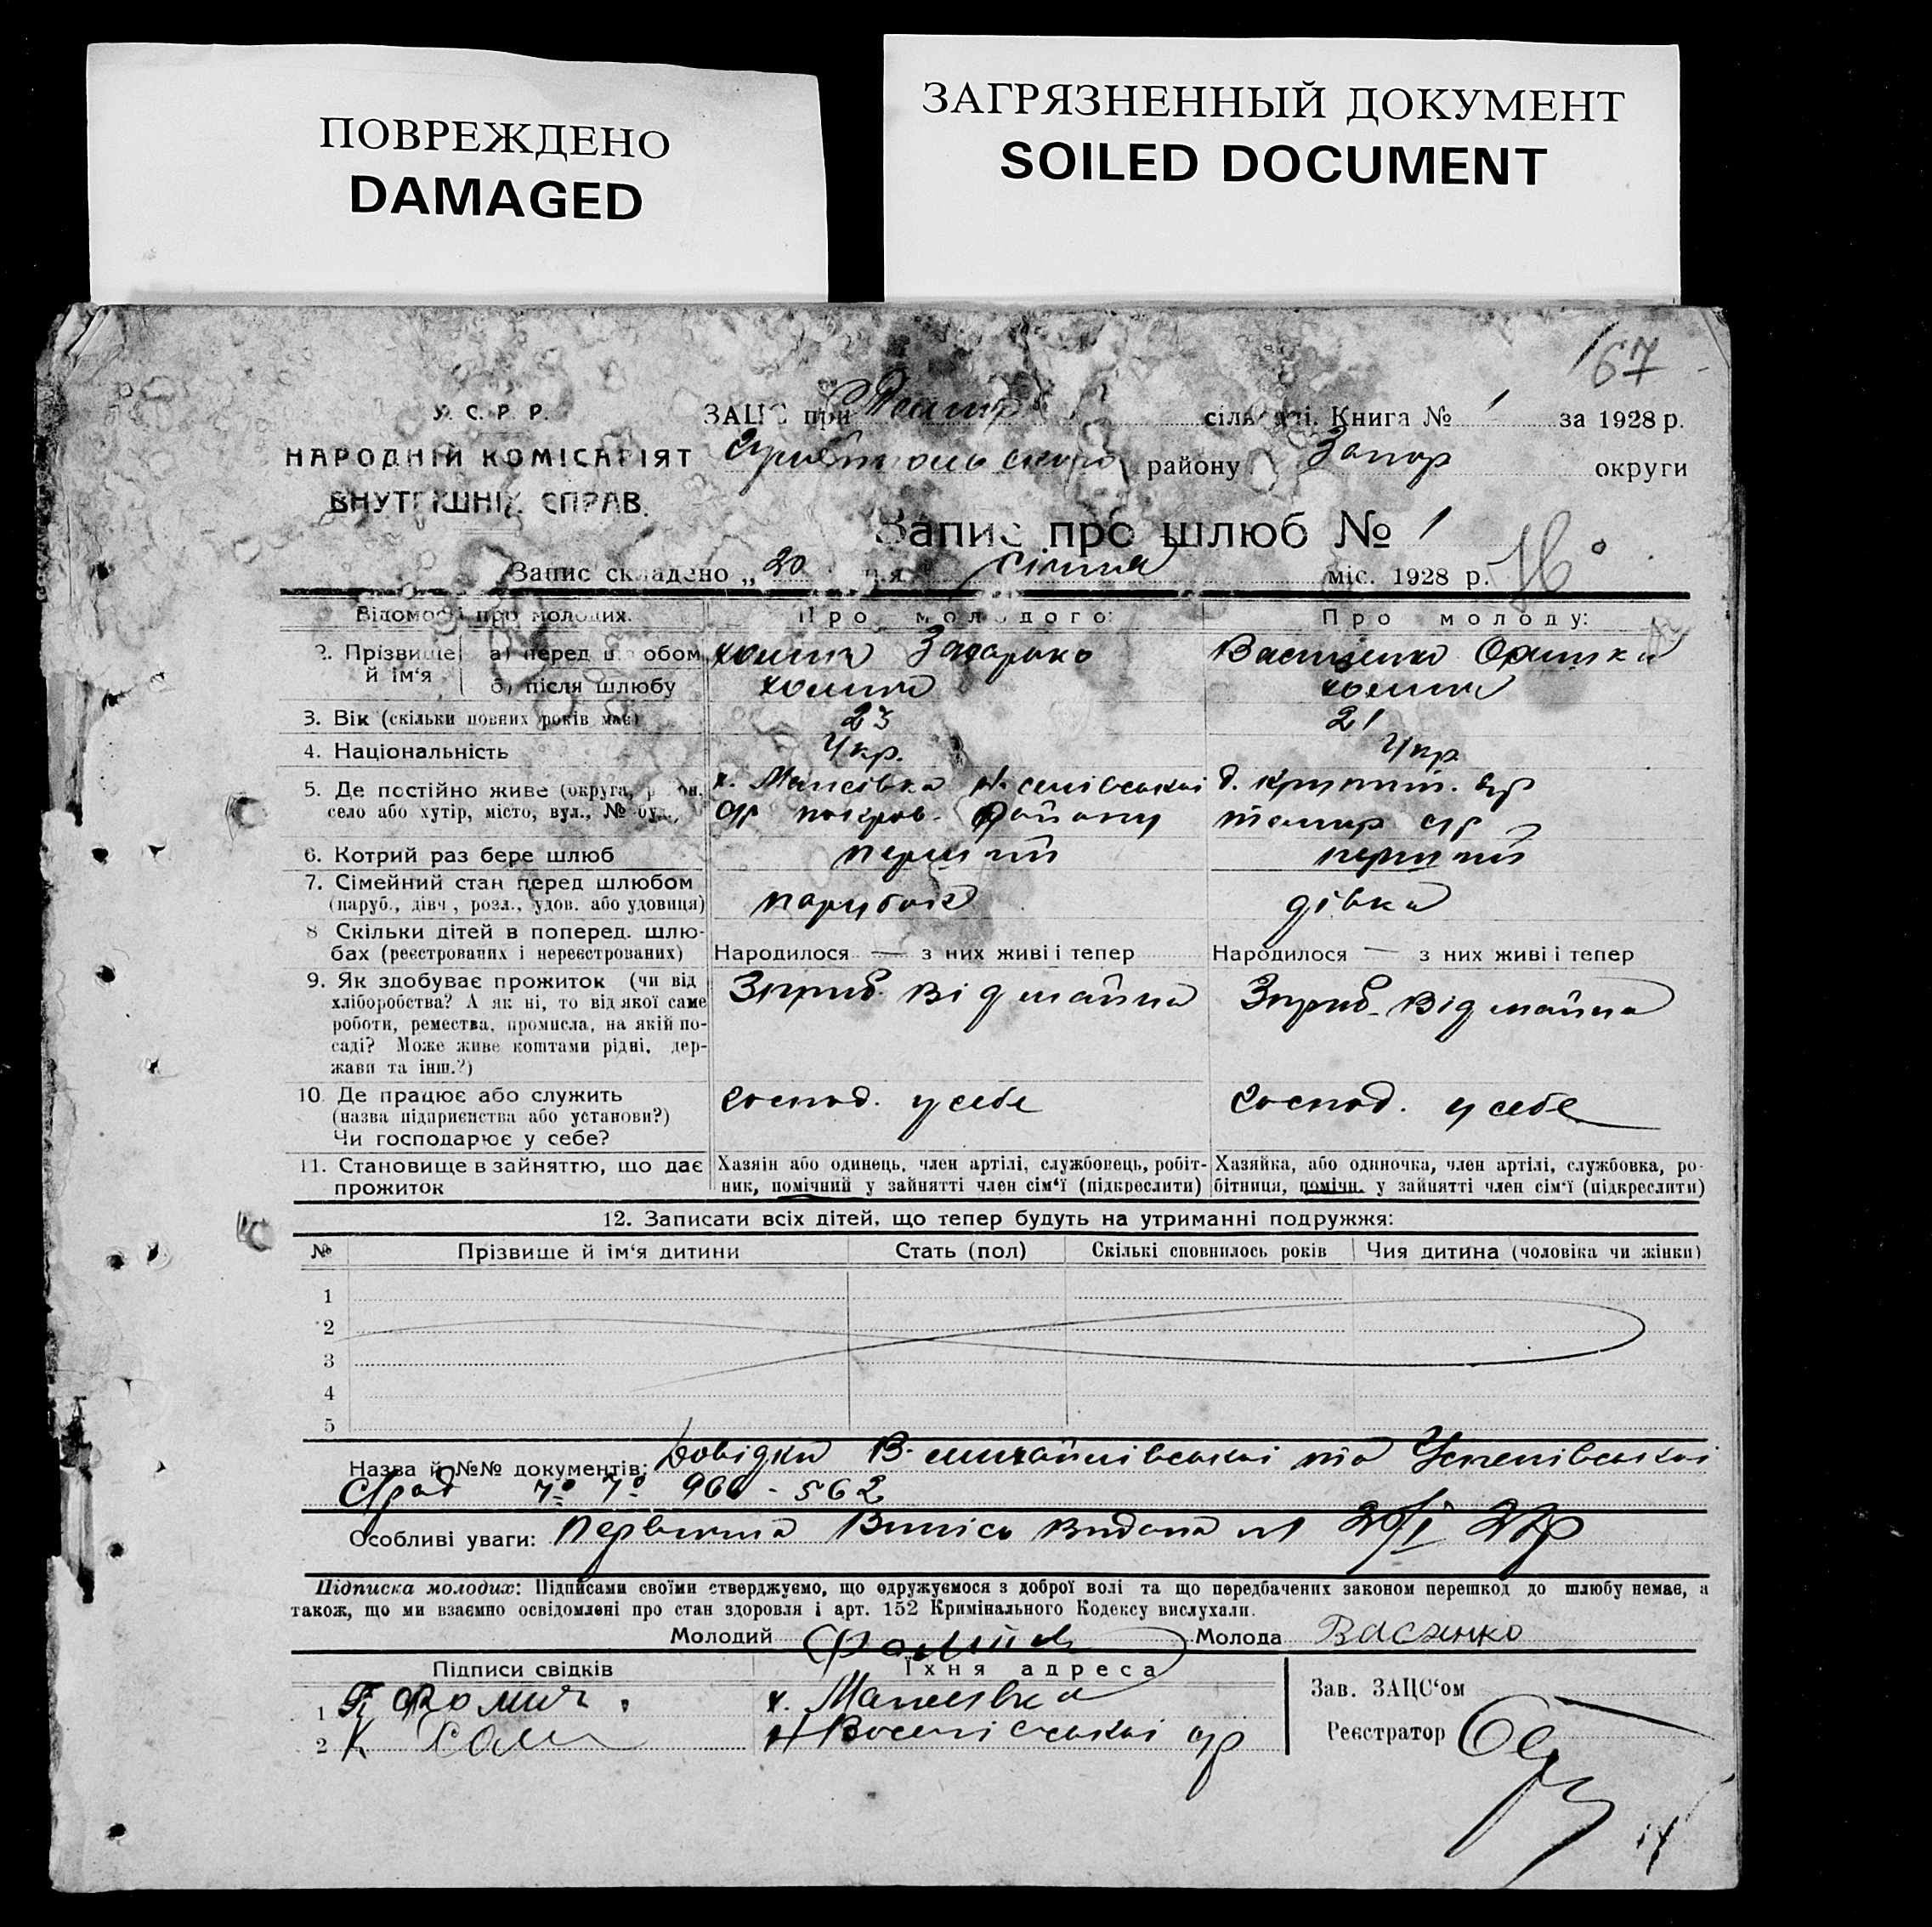 ПОВРЕЖДЕНО
DAMAGED
ЗАГРЯЗНЕННЫЙ ДОКУМЕНТ
SOILED DOCUMENT
167
У. С. Р. Р.
НАРОДНІЙ КОМІСАРІЯТ
ВНУТРІШНІХ СПРАВ.
ЗАЦС при Темир сільраді. Книга № 1 за 1928 р.
району Запор округи
Запис про шлюб № 1
Запис складено „20 дня січня міс. 1928 р.
Відомості про молодих. Про молодого: Про молоду:
2. Прізвище й ім‘я а) перед шлюбом Хомич Захарько Васященко Оришка
б) після шлюбу Хомич Хомич
3. Вік (скільки повних років має) 23 21
4. Національність Укр. Укр.
5. Де постійно живе (округа, район, х. покров. району
село або хутір, місто, вул., № буд.,
6. Котрий раз бере шлюб перший перший
7. Сімейний стан перед шлюбом
(паруб., дівч., розл., удов. або удовиця) парубок дівка
8 Скільки дітей в поперед. шлю-
бах (реєстрованих і нереєстрованих) Народилося — з них живі і тепер Народилося — з них живі і тепер
9. Як здобуває прожиток (чи від
хліборобства? А як ні, то від якої саме
роботи, ремества, промисла, на якій по-
саді? Може живе коштами рідні, дер-
жави та інш.?)
Зприб. від майна Зприб. від майна
10. Де працює або служить
(назва підприємства або установи?)
Чи господарює у себе?
господ. у себе господ. у себе
11. Становище в зайняттю, що дає
прожиток
Хазяін або одинець, член артілі, службовець, робіт-
ник, помічний у зайнятті член сім‘ї (підкреслити)
Хазяйка, або одиночка, член артілі, службовка, ро-
бітниця, помічн. у зайнятті член сім‘ї (підкреслити)
12. Записати всіх дітей, що тепер будуть на утриманні подружжя:
№ Прізвише й ім‘я дитини Стать (пол) Скількі сповнилось років Чия дитина (чоловіка чи жінки)
1
2
3
4
5
Назва й №№ документів: Довідки В-михайлівської та Успенівської
С/рад № № 960 - 562
Особливі уваги: Первична Випись видана
Підписка молодих: Підписами своїми стверджуємо, що одружуємося з доброї волі та що передбачених законом перешкод до шлюбу немає, а
також, що ми взаємно освідомлені про стан здоровля і арт. 152 Кримінального Кодексу вислухали.
Молодий Фомич Молода Васянко
Підписи свідків Їхня адреса
1 Фомич.
2 К
Зав. ЗАЦС‘ом
Реєстратор